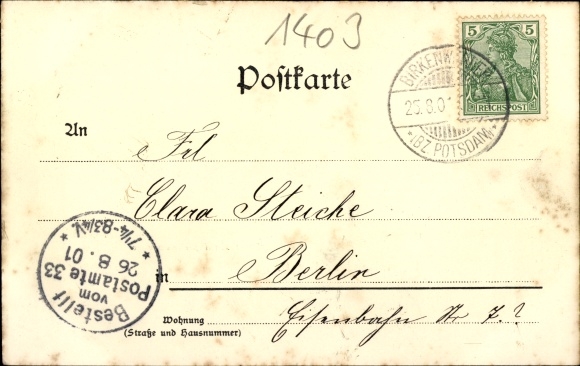 1403
Postkarte
5 5
REICHSPOST
BIRKENWERDER
25.8.01
* (BZ POTSDAM) *
An
Frl
Clara Steiche
in Berlin
Wohnung Eisenbahn Str 7.?
(Straße und Hausnummer)
Bestellt
vom
Postamte 33
26 8. 01
* 7¼-8¾V. *